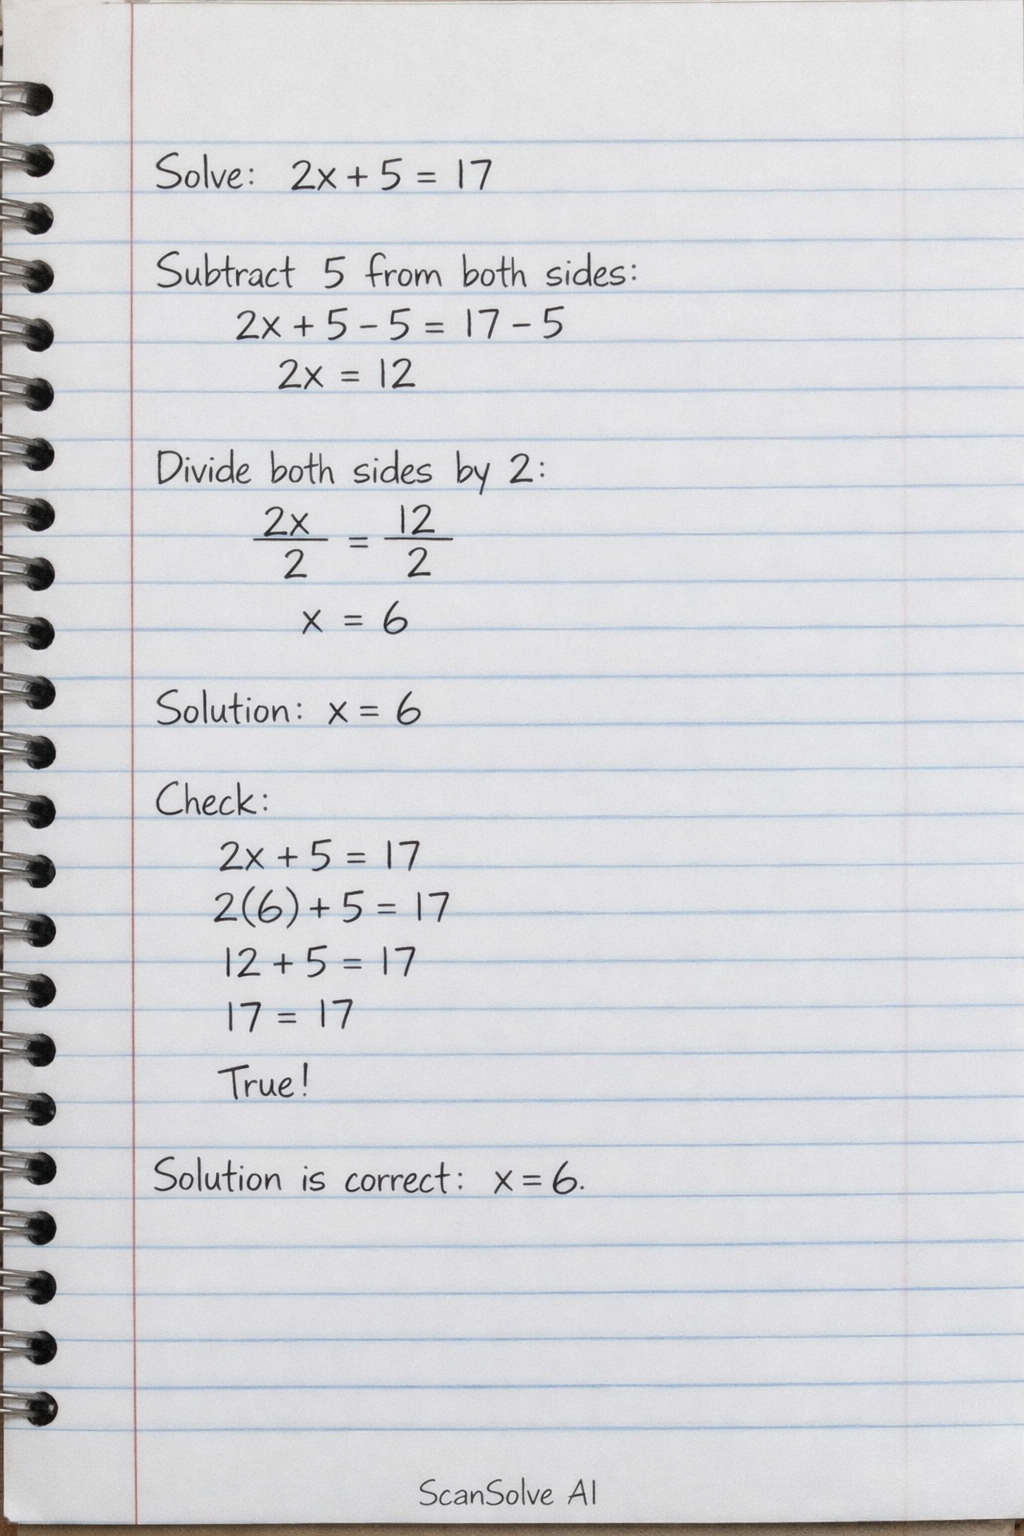 Solve: 2x + 5 = 17
Subtract 5 from both sides:
2x + 5 - 5 = 17 - 5
2x = 12
Divide both sides by 2:
2x/2 = 12/2
x = 6
Solution: x = 6
Check:
2x + 5 = 17
2(6) + 5 = 17
12 + 5 = 17
17 = 17
True!
Solution is correct: x = 6.
ScanSolve AI